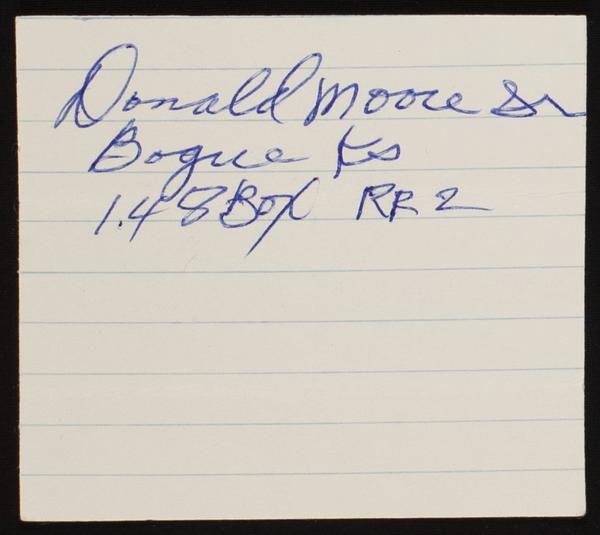 Donald Moore Sr
Bogue Ks
1.48 Box RR 2